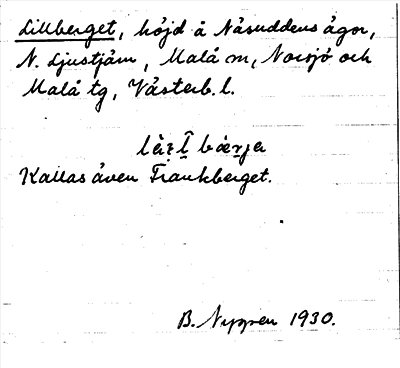 Lillberget, höjd å Näsuddens ägor,
N. Ljustjärn, Malå sn, Norsjö och
Malå tg, Västerb. l.
Kallas även Frankberget.
B. Nygren 1930.